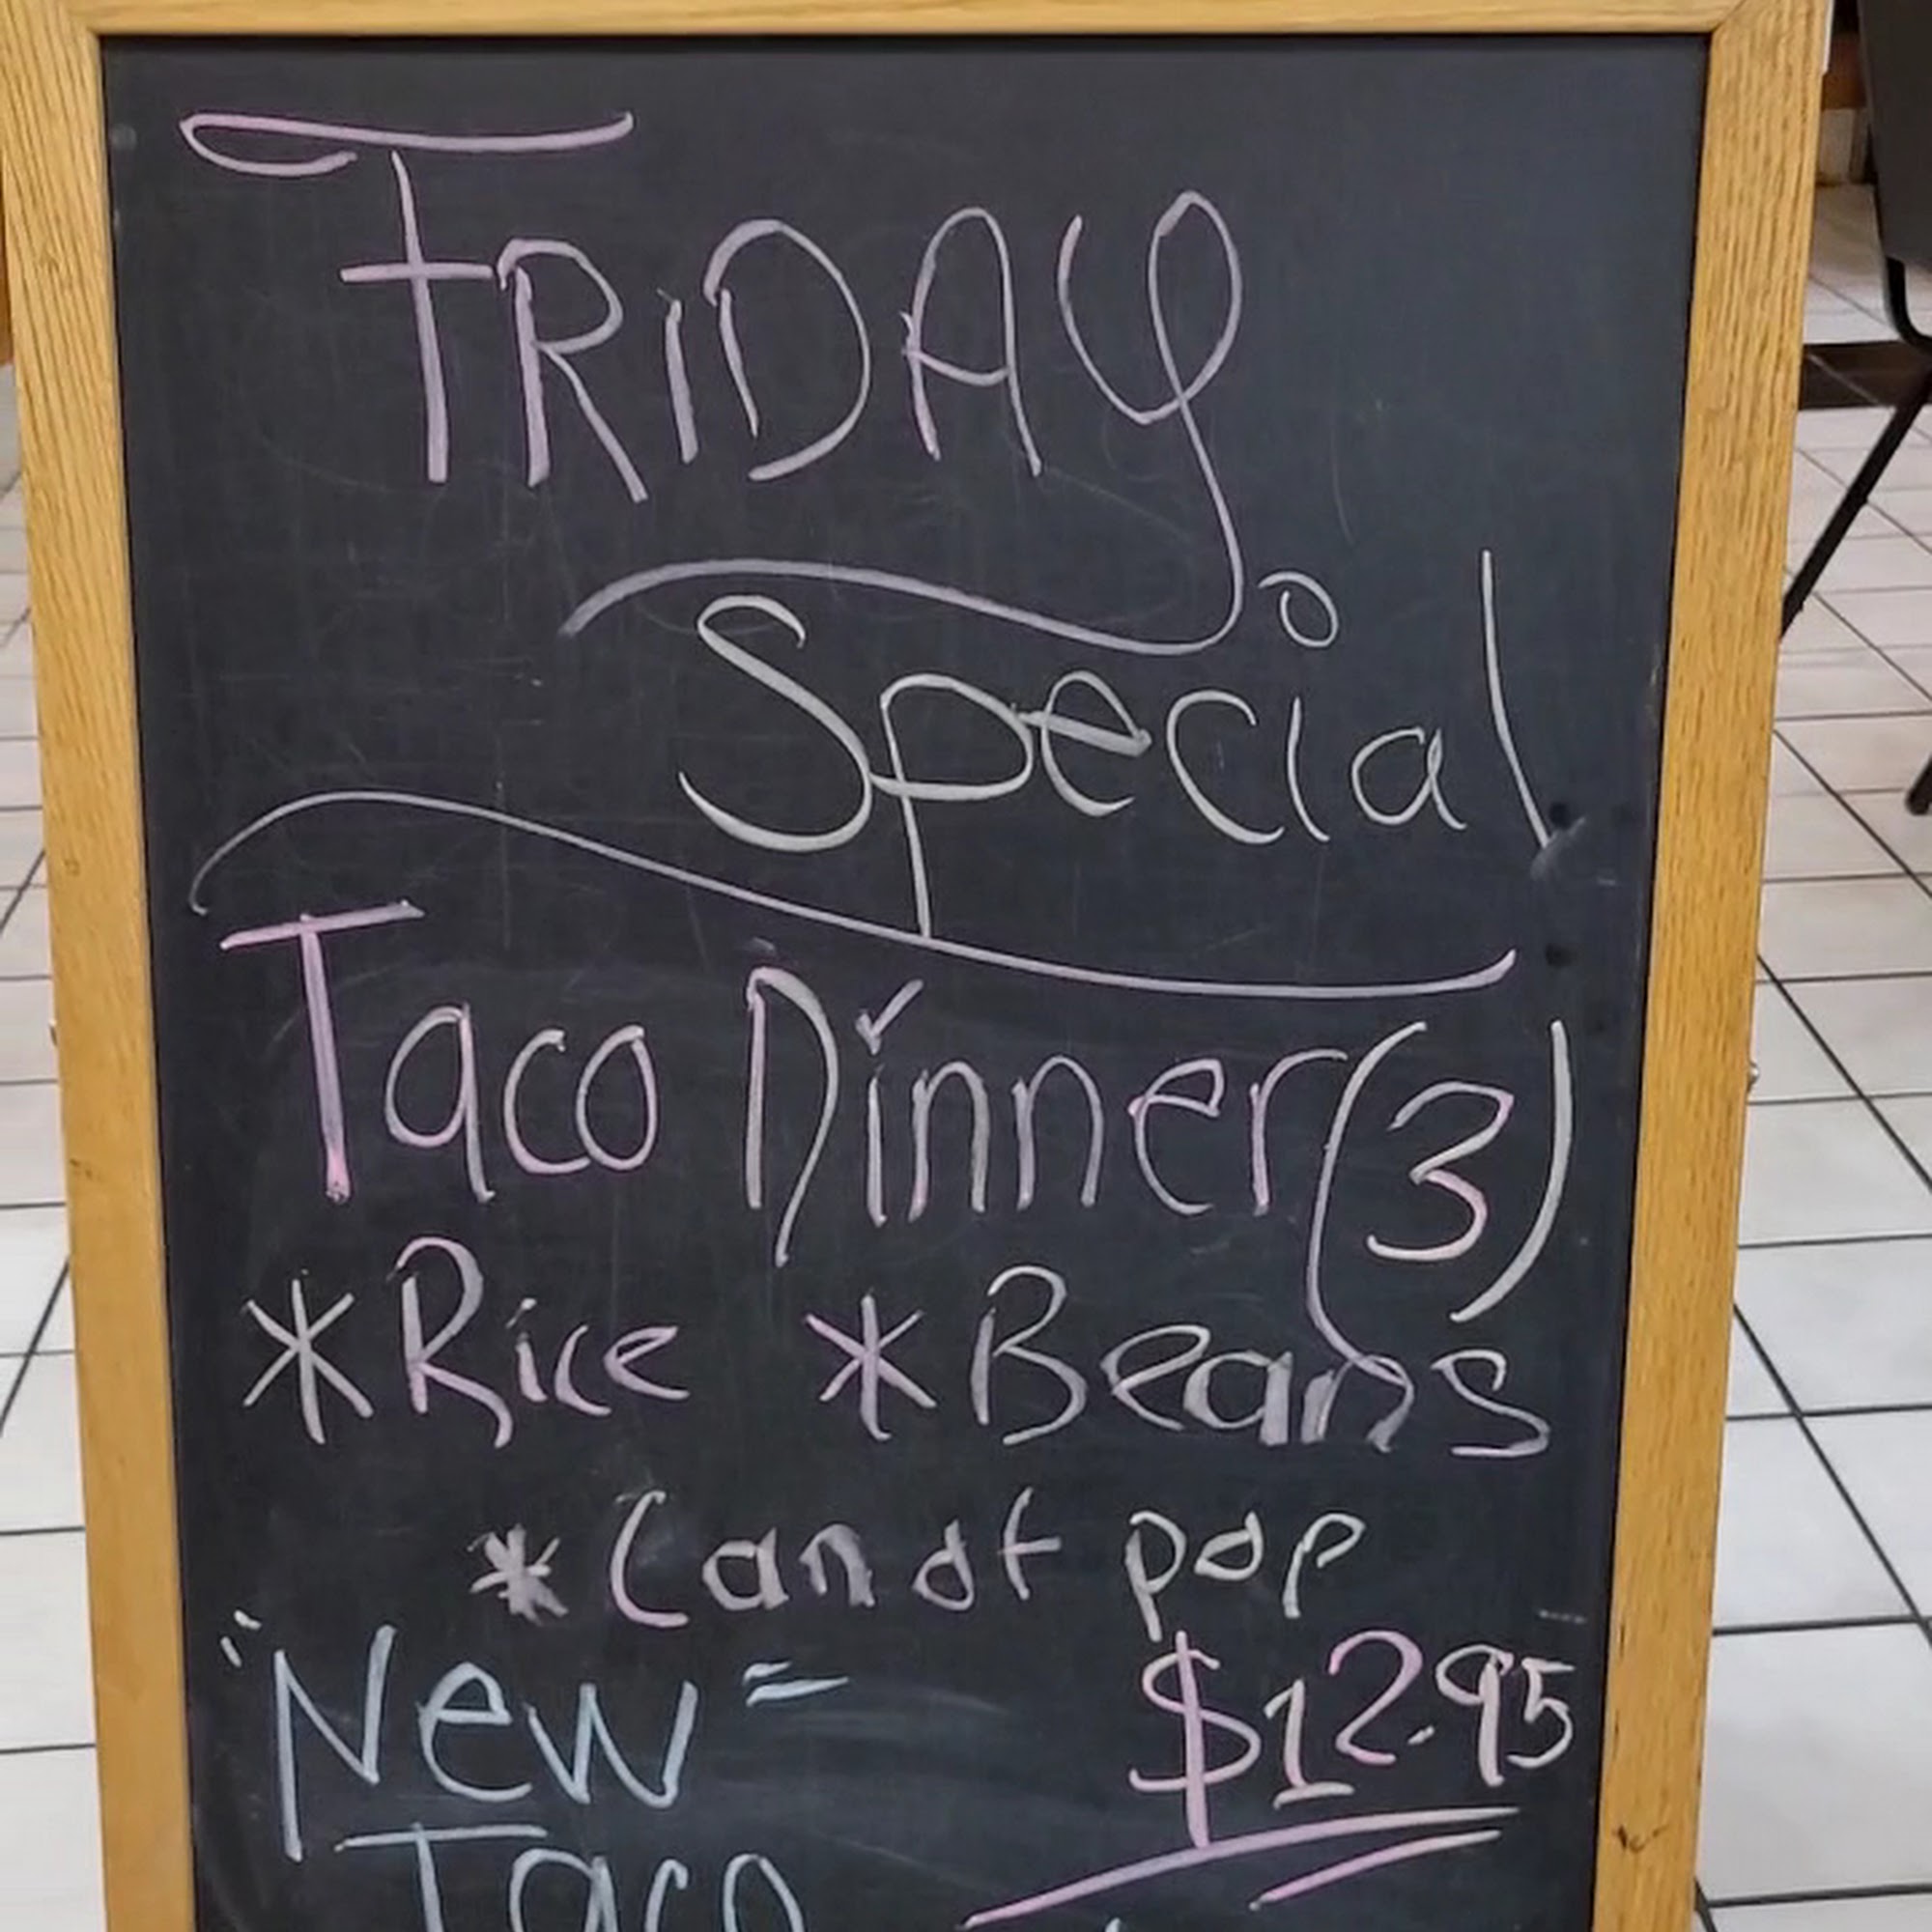 FRiDAY
Special
Taco Dinner (3)
*Rice *Beans
*Can of pop
"New" $12.95
Taco